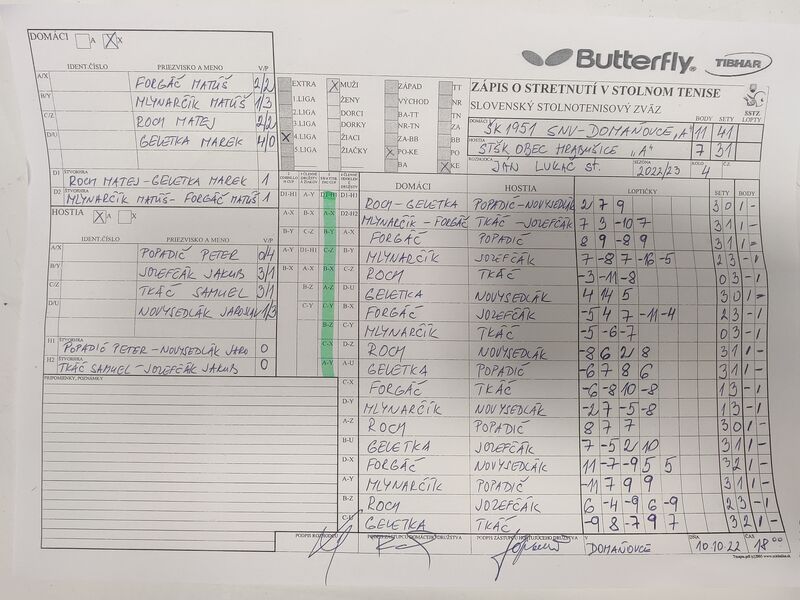 DOMÁCI A X
Butterfly TIBHAR
IDENT.ČÍSLO PRIEZVISKO A MENO V/P
A/X FORGÁČ MATÚŠ 2/2
B/Y MLYNARČÍK MATÚŠ 1/3
C/Z ROCH MATEJ 2/2
D/U GELETKA MAREK 4/0
D1 ROCH MATEJ-GELETKA MAREK 1
D2 MLYNARČÍK MATÚŠ-FORGÁČ MATÚŠ 1
HOSTIA A X
IDENT.ČÍSLO PRIEZVISKO A MENO V/P
A/X POPADIČ PETER 0/4
B/Y JOZEFČÁK JAKUB 3/1
C/Z TKÁČ SAMUEL 3/1
D/U NOVYSEDLÁK JAROSLAV 1/3
H1 ŠTVORHRA POPADIČ PETER-NOVYSEDLÁK JARO 0
H2 ŠTVORHRA TKÁČ SAMUEL-JOZEFČÁK JAKUB 0
PRIPOMIENKY, POZNÁMKY
EXTRA X MUŽI ZÁPAD TT
1.LIGA ŽENY VÝCHOD NR
2.LIGA DORCI BA-TT TN
3.LIGA DORKY NR-TN ZA
X 4.LIGA ŽIACI ZA-BB BB
5.LIGA ŽIAČKY X PO-KE PO
BA X KE
ZÁPIS O STRETNUTÍ V STOLNOM TENISE
SLOVENSKÝ STOLNOTENISOVÝ ZVÄZ
SSTZ
BODY SETY LOPTY
DOMÁCI ŠK 1951 SNV-DOMAŇOVCE "A" 11 41
HOSTIA STŠK OBEC HRABUŠICE "A" 7 31
ROZHODCA JAN LUKÁČ ST. SEZÓNA 2022/23 KOLO 4 Č.Z.
DOMÁCI HOSTIA LOPTIČKY SETY BODY
D1-H1 ROCH-GELETKA POPADIČ-NOVYSEDLÁK 2 7 9 3 0 1 -
D2-H2 MLYNARČÍK-FORGÁČ TKÁČ-JOZEFČÁK 7 3 -10 7 3 1 1 -
A-X FORGÁČ POPADIČ 8 9 -8 9 3 1 1 -
B-Y MLYNARČÍK JOZEFČÁK 7 -8 7 -16 -5 2 3 - 1
C-Z ROCH TKÁČ -3 -11 -8 0 3 - 1
D-U GELETKA NOVYSEDLÁK 4 14 5 3 0 1 -
B-X FORGÁČ JOZEFČÁK -5 4 7 -11 -4 2 3 - 1
MLYNARČÍK TKÁČ -5 -6 -7 0 3 - 1
ROCH NOVYSEDLÁK -8 6 2 8 3 1 1 -
GELETKA POPADIČ -6 7 8 6 3 1 1 -
C-X FORGÁČ TKÁČ -6 -8 10 -8 1 3 - 1
D-Y MLYNARČÍK NOVYSEDLÁK -2 7 -5 -8 1 3 - 1
A-Z ROCH POPADIČ 8 7 7 3 0 1 -
B-U GELETKA JOZEFČÁK 7 -5 2 10 3 1 1 -
D-X FORGÁČ NOVYSEDLÁK 11 -7 -9 5 5 3 2 1 -
A-Y MLYNARČÍK POPADIČ -11 7 9 9 3 1 1 -
B-Z ROCH JOZEFČÁK 6 -4 -9 6 -9 2 3 - 1
C-U GELETKA TKÁČ -9 8 -7 9 7 3 2 1 -
PODPIS ROZHODCU PODPIS ZÁSTUPCU DOMÁCEHO DRUŽSTVA PODPIS ZÁSTUPCU HOSŤUJÚCEHO DRUŽSTVA V DOMAŇOVCE DŇA 10.10.22 ČAS 18 00